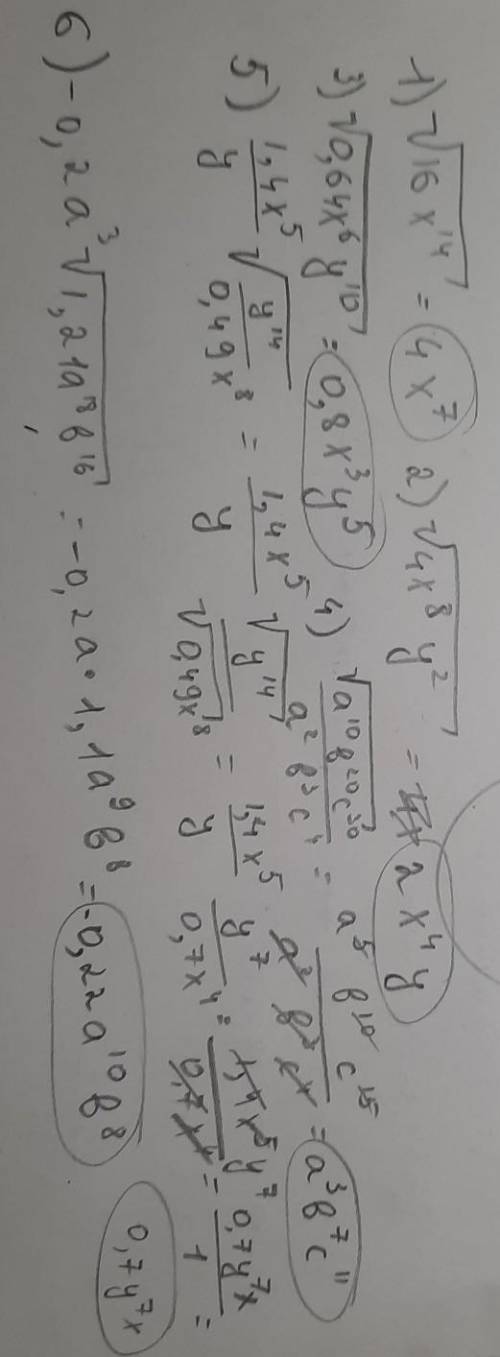 1) √16x¹⁴ = 4x⁷ 2) √4x⁸y² = 2x⁴y
3) √0,64x⁶y¹⁰ = 0,8x³y⁵ 4) √a¹⁰b²⁰c³⁰ / a²b³c⁴ = a⁵b¹⁰c¹⁵ / a²b³c⁴ = a³b⁷c¹¹
5) 1,4x⁵/y √y¹⁴/0,49x⁸ = 1,4x⁵/y √y¹⁴/√0,49x⁸ = 1,4x⁵/y y⁷/0,7x⁴ = 1,4x⁵y⁷/0,7x⁴ = 0,7y⁷x/1 =
0,7y⁷x
6) -0,2a³√1,21a¹⁸b¹⁶ = -0,2a·1,1a⁹b⁸ = -0,22a¹⁰b⁸